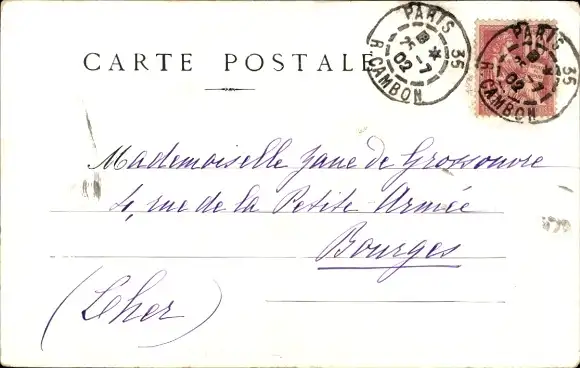 CARTE POSTALE
PARIS 35
8
*
7
02
R. CAMBON
PARIS 35
7
02
R. CAMBON
Mademoiselle Jane de Grossouvre
4, rue de la Petite Armée
Bourges
(Cher)